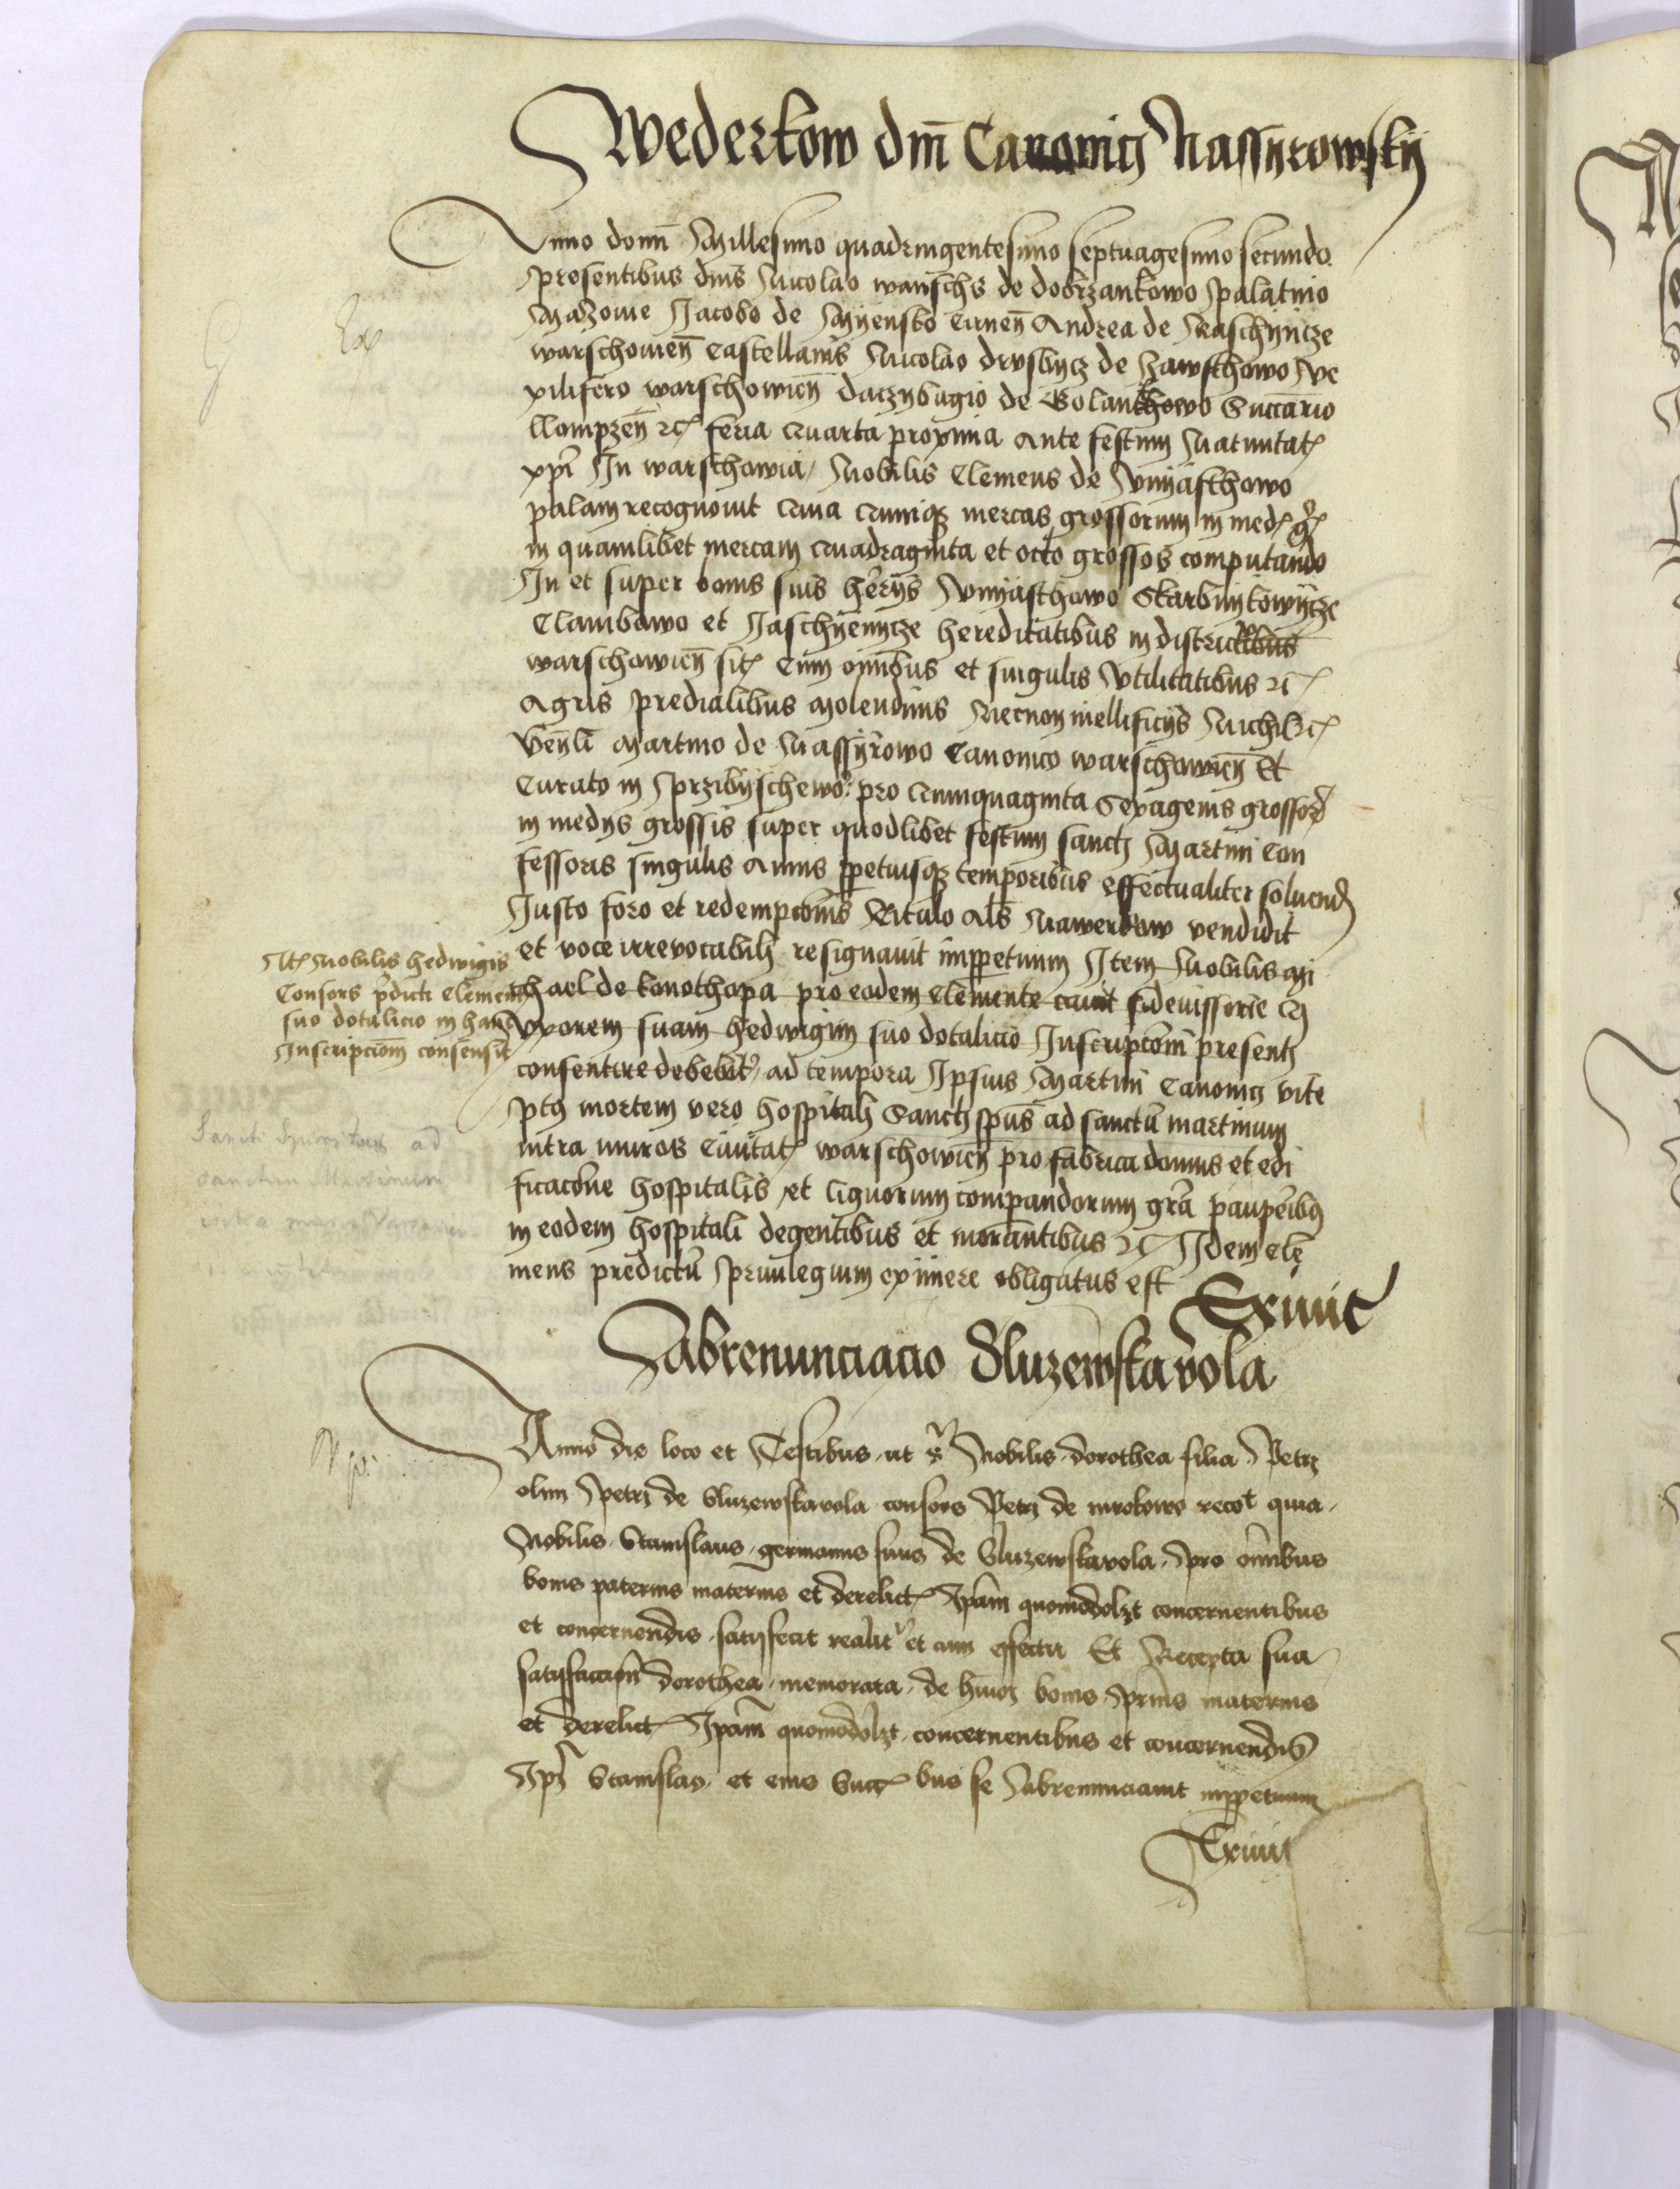 Wederkow dm̄ Canonicj Nassyrowsky
Anno domī Millesimo quadringentesimo septuagesimo secundo
presentibus dnīs Nicolao warschs de dobrzankowo palatino
Mazouie Jacobo de Myensko Cirneñ Andrea de Raschyncze
warschouieñ Castellanis Nicolao de Zawschowo Ve
xilifero warschowieñ daczybagio de Golanchowo Succario
llompzeñ etc feria Quarta proxima Ante festum Natiuitat
xpī In warschowia Nobilis Clemens de Vmyasthowo
palam recognouit Quia Quinqz mercas grossorum in med gr
in quamlibet mercam Quadraginta et octo grossos computando
In et super bonis suis herijs Vmyasthowo Skarbnykowycze
Clambowo et Jaschyenycze hereditatibus in districtibus
warschowieñ sit Cum omībus et singulis Vtilitatibus etc
Agris predialibus Molendinis Necnon mellificijs Nichil etc
Veñli Martino de Nassyrowo Canonico warschowieñ Et
Curato in przibyschewo pro Quinquaginta Sexagenis grossor
in medijs grossis super quodlibet festum sanctj Martini Con
fessoris singulis Annis ppetuisqz temporibus effectualiter soluend
Justo foro et redempcōnis Titulo Als Nawerkow vendidit
et voce irreuocabili resignauit imppetuum Item Nobilis Mi
chael de konothopa pro eodem Clemente cauit fideiussorie Q
Vxorem suam hedwigim suo dotalicio Inscripcōni presentj
consentire debebit ad tempora Ipsius Martini Canonicj vite
ptq mortem vero hospitali Sanctj sp̄us ad sanctū martinum
intra muros Ciuitat warschowieñ pro fabrica domus et edi
ficacōne hospitalis et lignorum compandorum grā pauperibq
in eodem hospitali degentibus et morantibus etc Idem Cle
mens predictū priuilegium eximere obligatus est
Exiuit
Itē Nobilis hedwigis
Consors p̄dicti Clementis
suo dotalicio in hanc
Inscripcioēm consensit
Sancti Spiritus ad
sanctum Martinum
intra muros
Abrenunciacio Sluzewskavola
Anno die loco et Testibus ut sͬ Nobilis dorothea filia Petrj
olim Petrj de Sluzewskavola consors Petrj de mrokowo recot quia
Nobilis Stanislaus germanus suus de Sluzewskavola pro omībus
bonis paternis maternis et derelict Ipsam quomodolzt concernentibus
et concernendis satisfecit realitͬ et cum effectu Et Recepta sua
satisfaccioñ dorothea memorata de hmoj bonis prnis maternis
et derelict Ipsam quomodolzt concernentibus et concernendis
Ipi Stanislao et eius Succ bus se Abrenunciauit imppetuum
Exiuit